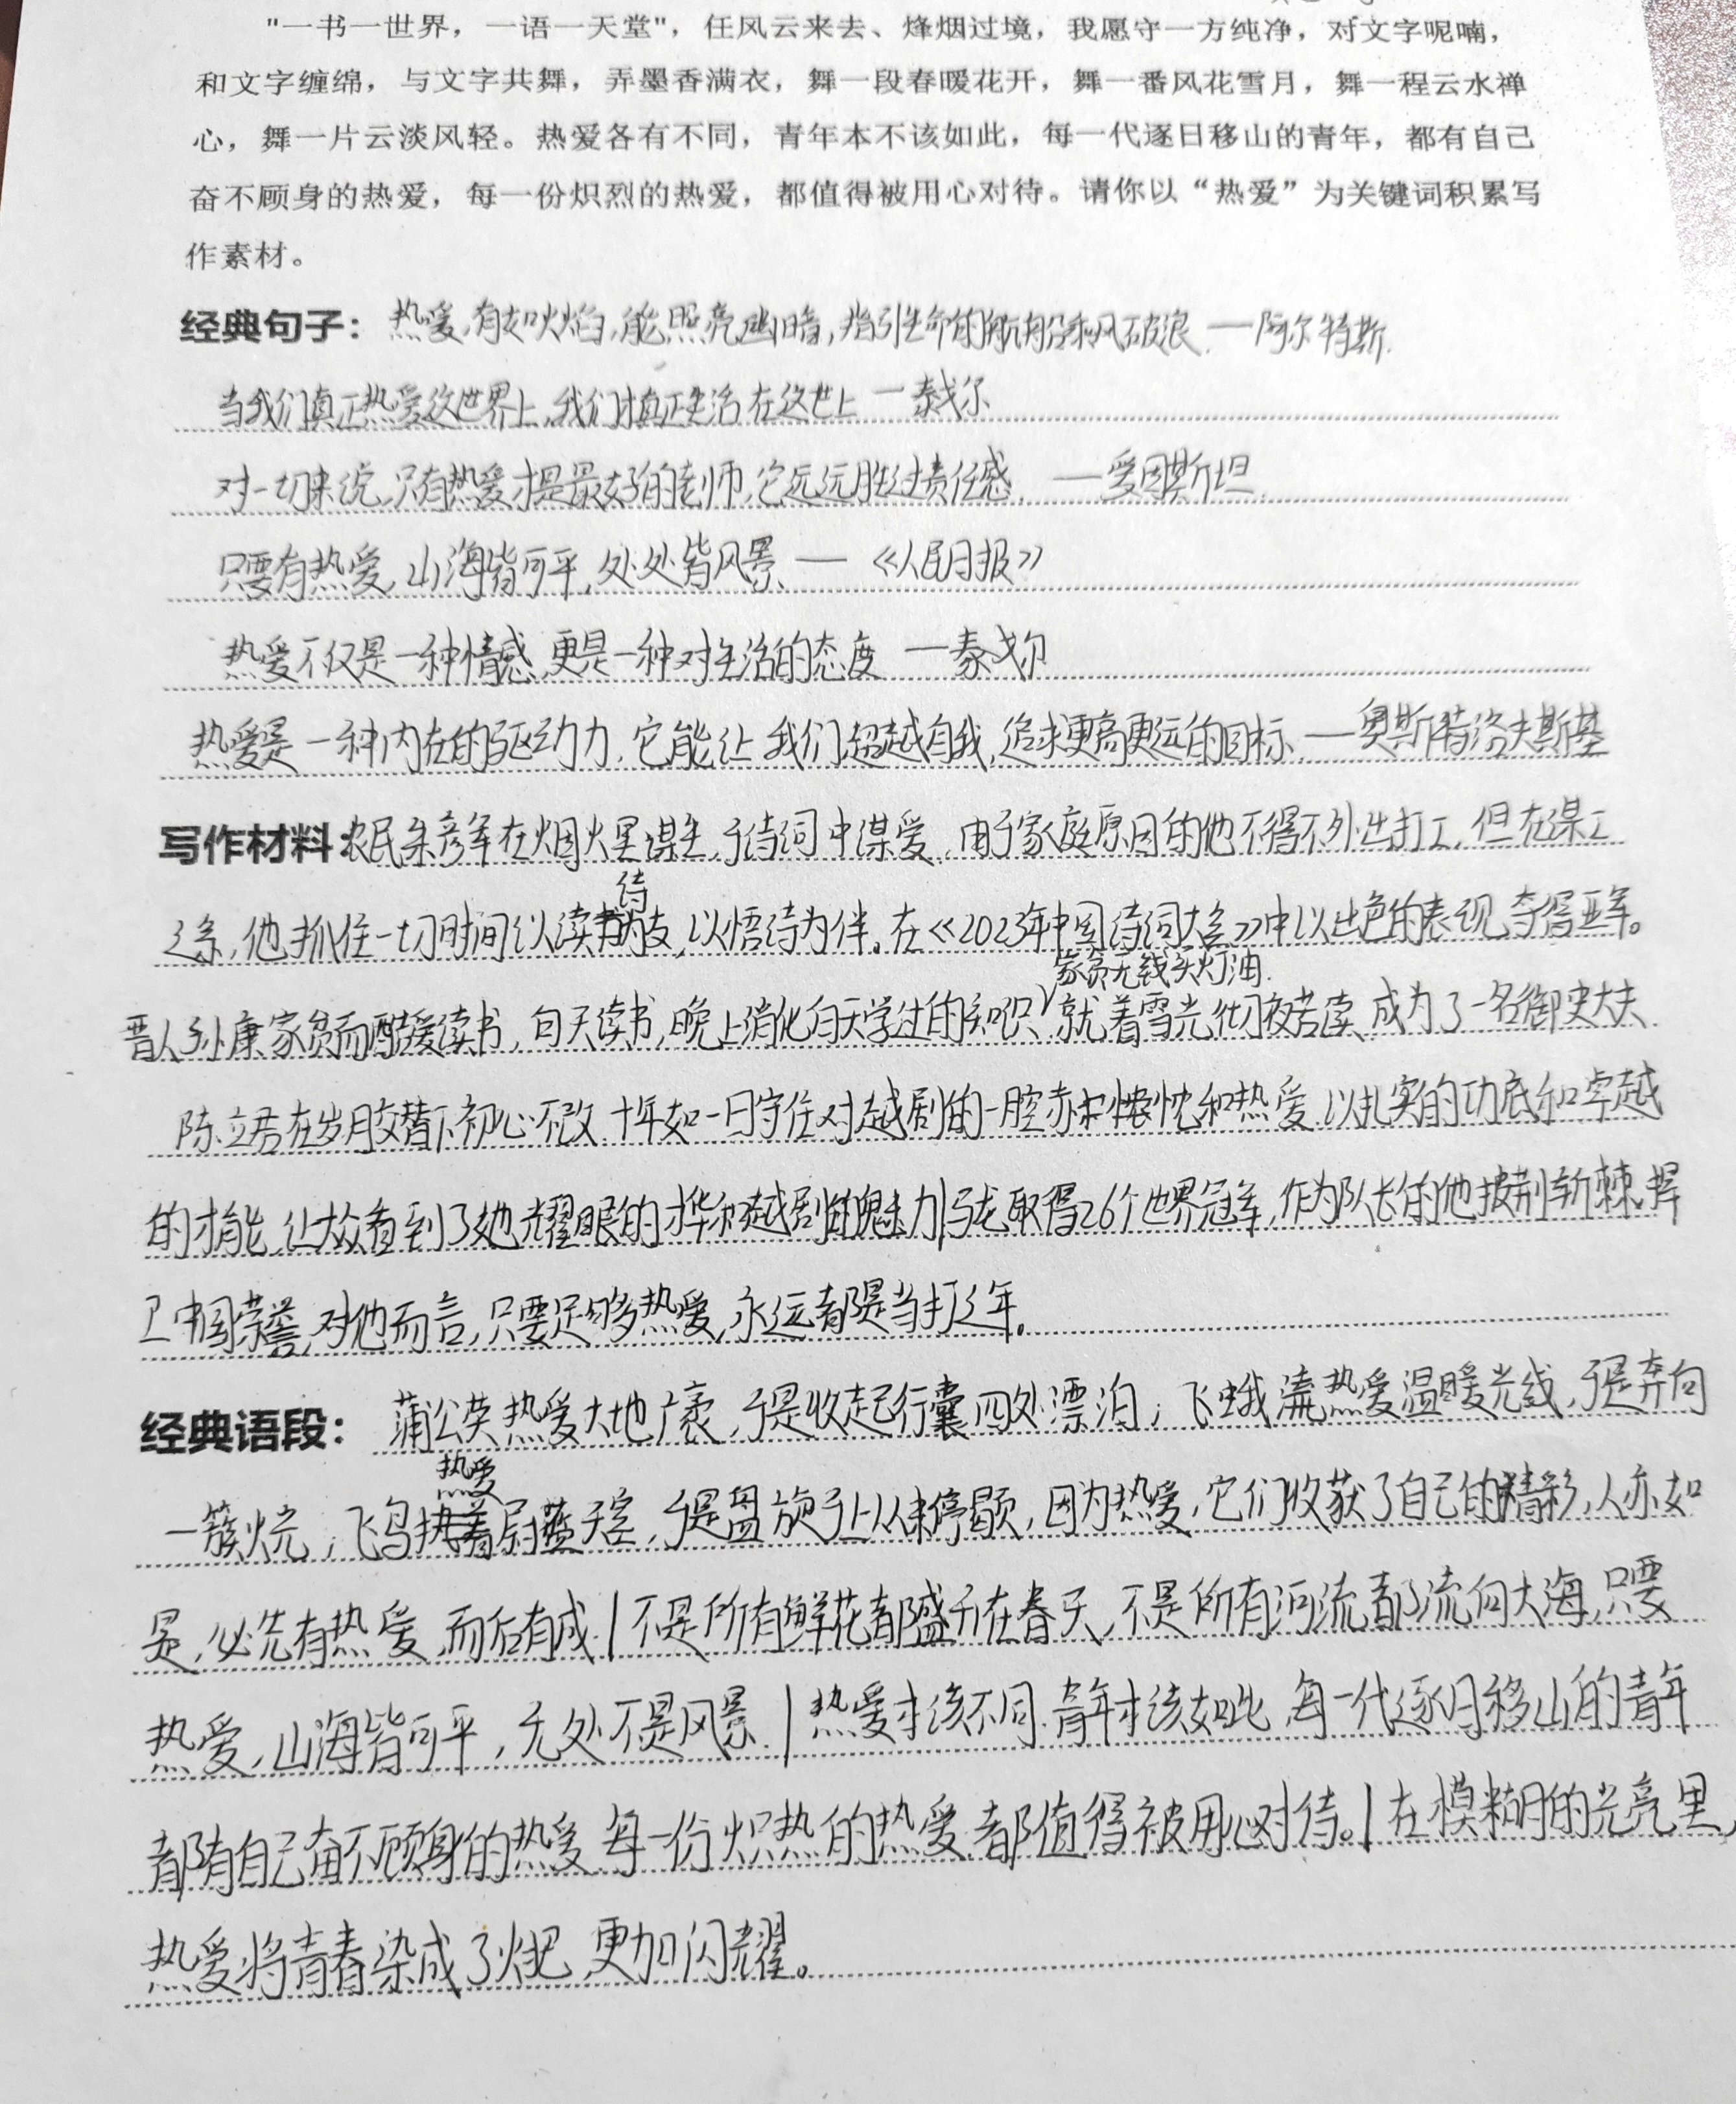 "一书一世界，一语一天堂"，任风云来去、烽烟过境，我愿守一方纯净，对文字呢喃，
和文字缠绵，与文字共舞，弄墨香满衣，舞一段春暖花开，舞一番风花雪月，舞一程云水禅
心，舞一片云淡风轻。热爱各有不同，青年本不该如此，每一代逐日移山的青年，都有自己
奋不顾身的热爱，每一份炽烈的热爱，都值得被用心对待。请你以“热爱”为关键词积累写
作素材。
经典句子：热爱,有如火焰,能照亮幽暗,指引生命的航船乘风破浪.——阿尔特斯.
当我们真正热爱这世界上,我们才真正生活在这世上 —泰戈尔
对一切来说,只有热爱才是最好的老师,它远远胜过责任感. ——爱因斯坦.
只要有热爱,山海皆可平,处处皆风景. —— 《人民日报》
热爱不仅是一种情感,更是一种对生活的态度 ——泰戈尔
热爱是一种内在的驱动力.它能让我们超越自我,追求更高更远的目标.——奥斯特洛夫斯基
写作材料:农民朱彦军在烟火里谋生,于诗词中谋爱.由于家庭原因的他不得不外出打工,但在谋工
之余,他抓住一切时间以读诗为友,以悟诗为伴.在《2023年中国诗词大会》中以出色的表现,夺得亚军。
家贫无钱买灯油.
晋人孙康家贫而酷爱读书,白天读书,晚上消化白天学过的知识,就着雪光彻夜苦读,成为了一名御史大夫
陈立君在岁月交替下初心不改.十年如一日守住对越剧的一腔赤忱和热爱.以扎实的功底和卓越
的才能,让大众看到了她耀眼的才华和越剧的魅力|马龙取得26个世界冠军,作为队长的他披荆斩棘,捍
卫中国荣誉,对他而言,只要足够热爱,永远都是当打之年。
经典语段：蒲公英热爱大地广袤,于是收起行囊四处漂泊;飞蛾热爱温暖光线,于是奔向
一簇火亮;飞鸟热爱蔚蓝天空,于是盘旋于上从未停歇,因为热爱,它们收获了自己的精彩,人亦如
是,必先有热爱,而后有成.|不是所有鲜花都盛开在春天,不是所有河流都流向大海,只要
热爱,山海皆可平,无处不是风景.|热爱才该不同.青年才该如此,每一代逐日移山的青年
都有自己奋不顾身的热爱,每一份炽热的热爱,都值得被用心对待。|在模糊的光亮里,
热爱将青春染成了火把,更加闪耀。